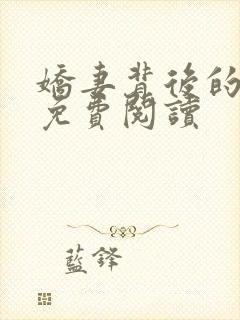 嬌妻背後的
免費閱讀
藍鋒